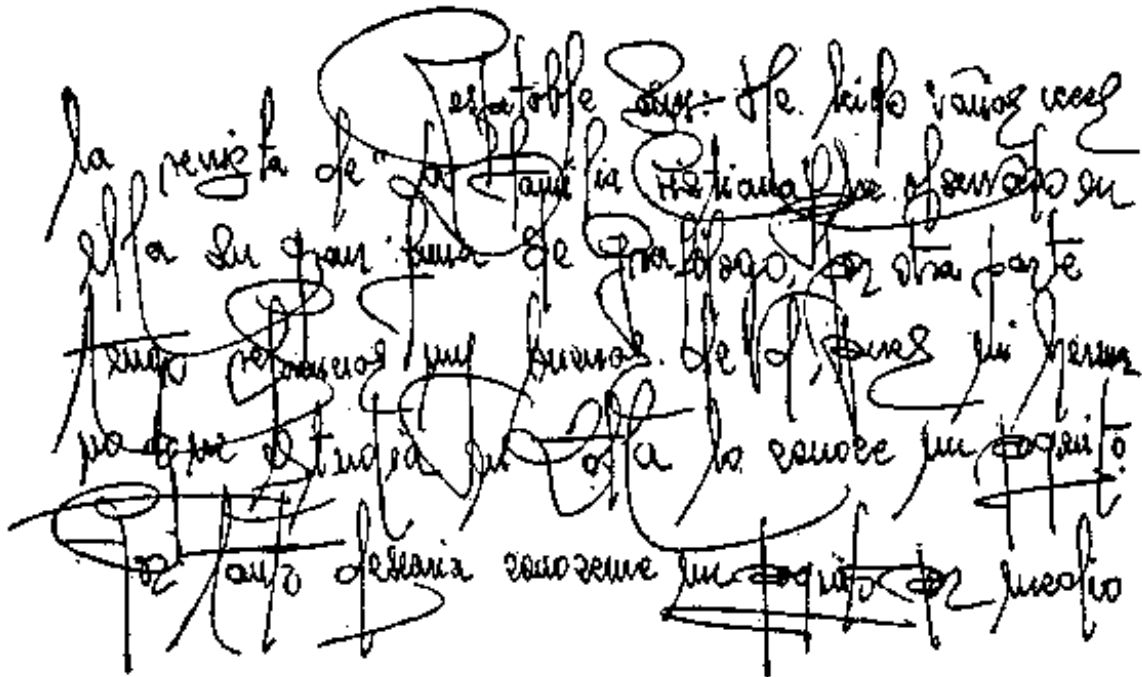 estable amg: He leido varias veces
la revista de "la familia cristiana" he observado en
ella su gran fama de grafologo, por otra parte
tengo referencias muy buenas de d, pues mi herma
no que estudia en la conoce un poquito
Por tanto desearia conocerme un poquito por medio